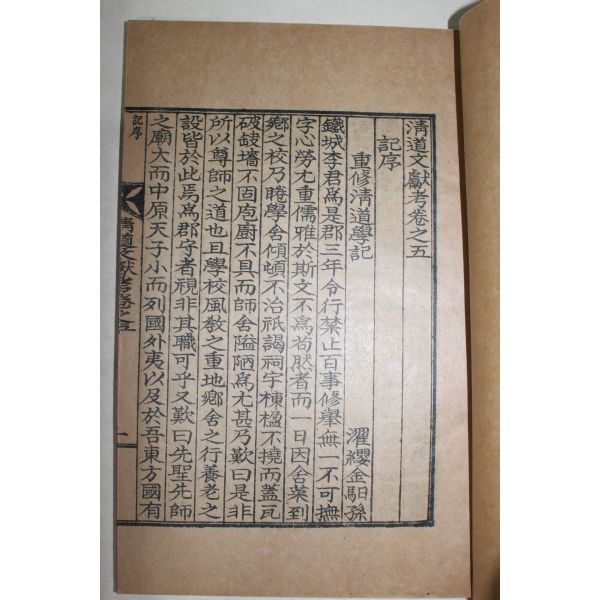 淸道文獻考卷之五
記序
重修淸道學記
濯纓金馹孫
鐵城李君爲是郡三年令行禁止百事修擧無一不可撫
字心勞尤重儒雅於斯文不爲苟然者而一日因舍菜到
鄕之校乃睠學舍傾頓不治祇謁祠宇棟楹不撓而蓋瓦
破缺墻不固庖廚不具而師舍隘陋爲尤甚乃歎曰是非
所以尊師之道也且學校風敎之重地鄕舍之行養老之
設皆於此焉爲郡守者視非其職可乎又歎曰先聖先師
之廟大而中原天子小而列國外夷以及於吾東方國有
記序
淸道文獻考卷之五
一